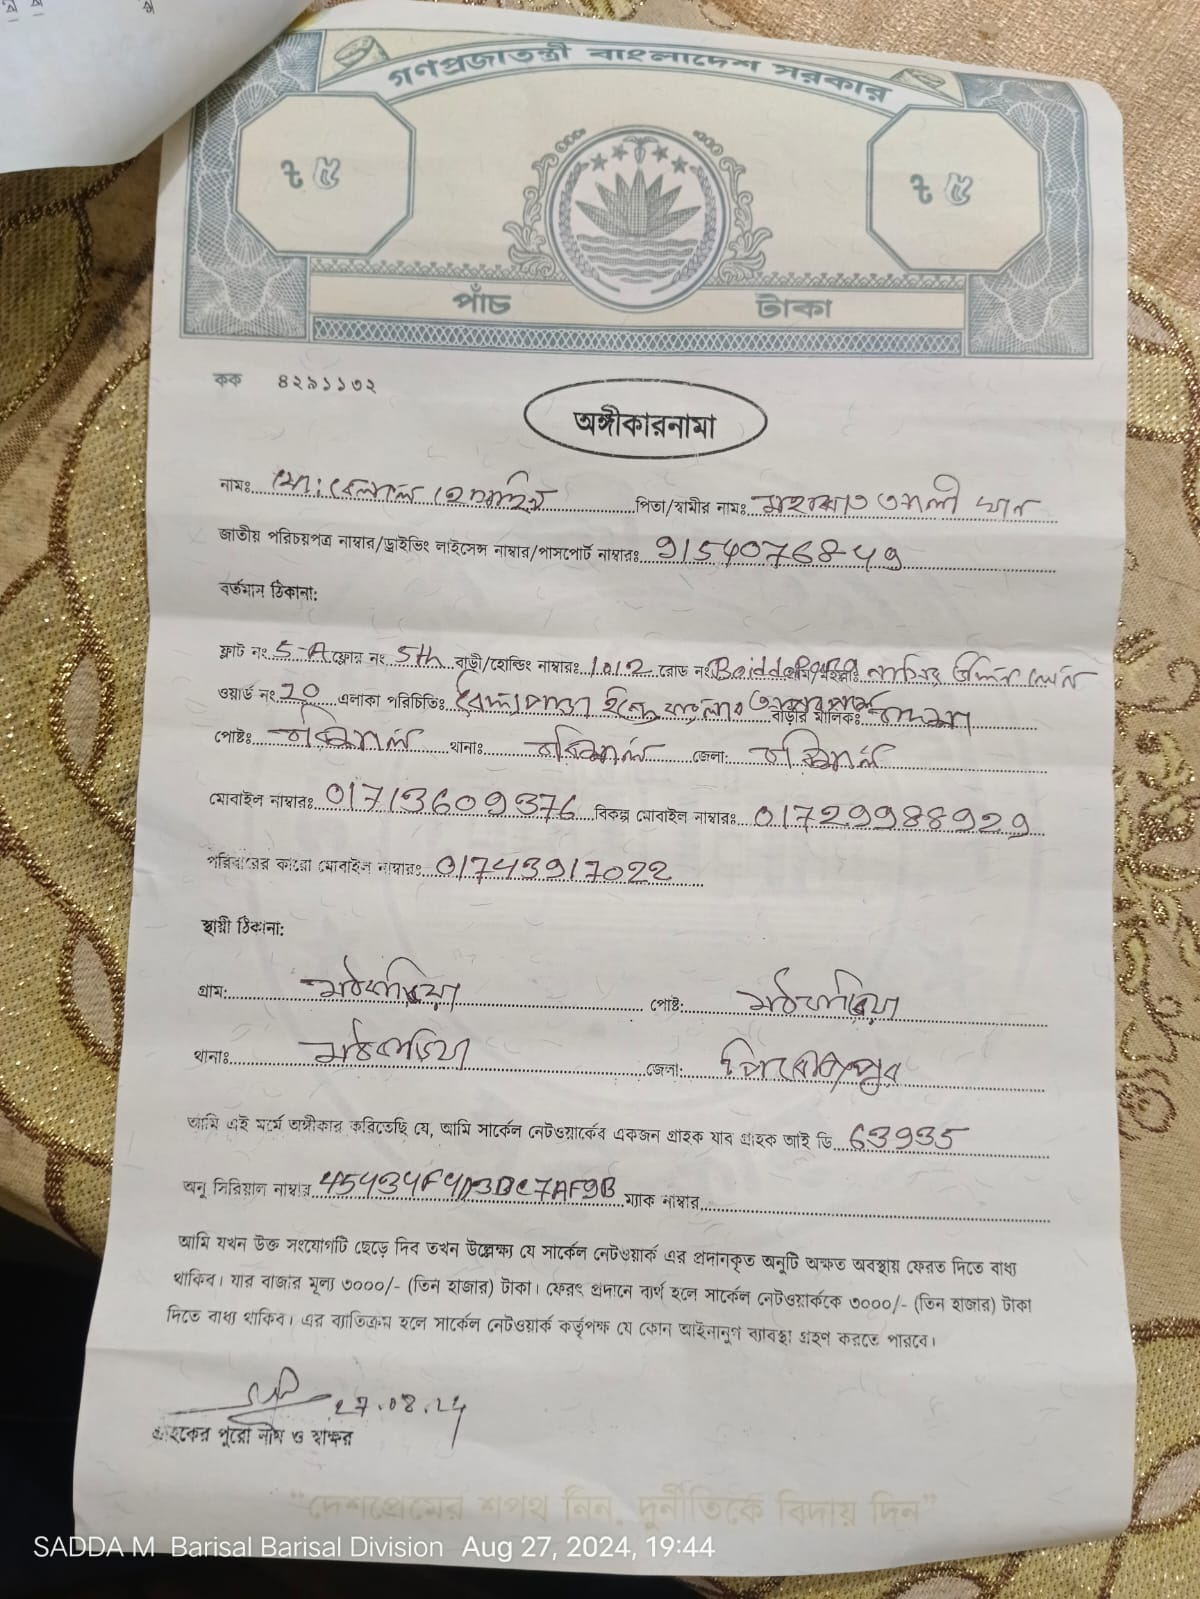 গণপ্রজাতন্ত্রী বাংলাদেশ সরকার
৳ ৫ ৳ ৫
পাঁচ টাকা
কক ৪২৯১১৩২
অঙ্গীকারনামা
নামঃ মোঃ বেলাল হোসাইন পিতা/স্বামীর নামঃ আলী খান
জাতীয় পরিচয়পত্র নাম্বার/ড্রাইভিং লাইসেন্স নাম্বার/পাসপোর্ট নাম্বারঃ 9154076849
বর্তমান ঠিকানা:
ফ্লাট নং 5-A ফ্লোর নং 5th বাড়ী/হোল্ডিং নাম্বারঃ 1012 রোড নং Baiddapara লেন
ওয়ার্ড নং 20 এলাকা পরিচিতিঃ বৈদ্যপাড়া বাড়ীর মালিকঃ
পোষ্টঃ বরিশাল থানাঃ বরিশাল জেলা: বরিশাল
মোবাইল নাম্বারঃ 01713609376 বিকল্প মোবাইল নাম্বারঃ 01729988929
পরিবারের কারো মোবাইল নাম্বারঃ 01743917022
স্থায়ী ঠিকানা:
গ্রাম: মঠবাড়িয়া পোষ্ট: মঠবাড়িয়া
থানাঃ মঠবাড়িয়া জেলা: পিরোজপুর
আমি এই মর্মে অঙ্গীকার করিতেছি যে, আমি সার্কেল নেটওয়ার্কের একজন গ্রাহক যাব গ্রাহক আই ডি 63935
অনু সিরিয়াল নাম্বার 45434F4D3BC7AF9B ম্যাক নাম্বার
আমি যখন উক্ত সংযোগটি ছেড়ে দিব তখন উল্লেক্ষ্য যে সার্কেল নেটওয়ার্ক এর প্রদানকৃত অনুটি অক্ষত অবস্থায় ফেরত দিতে বাধ্য
থাকিব। যার বাজার মূল্য ৩০০০/- (তিন হাজার) টাকা। ফেরৎ প্রদানে ব্যর্থ হলে সার্কেল নেটওয়ার্ককে ৩০০০/- (তিন হাজার) টাকা
দিতে বাধ্য থাকিব। এর ব্যাতিক্রম হলে সার্কেল নেটওয়ার্ক কর্তৃপক্ষ যে কোন আইনানুগ ব্যাবস্থা গ্রহণ করতে পারবে।
27.08.24
গ্রাহকের পুরো নাম ও স্বাক্ষর
"দেশপ্রেমের শপথ নিন, দুর্নীতিকে বিদায় দিন"
SADDA M Barisal Barisal Division Aug 27, 2024, 19:44